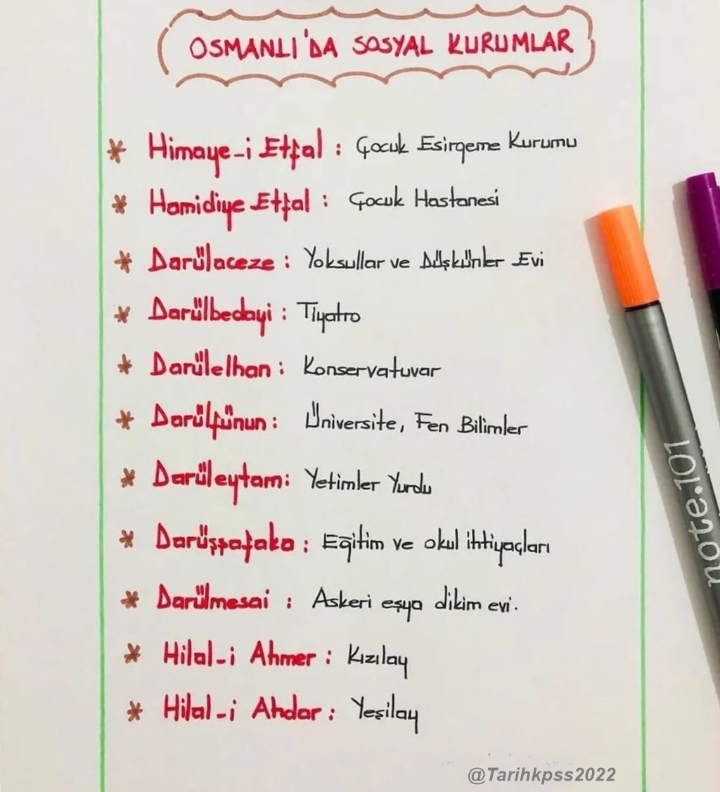 OSMANLI'DA SOSYAL KURUMLAR
* Himaye-i Etfal : Çocuk Esirgeme Kurumu
* Hamidiye Etfal : Çocuk Hastanesi
* Darülaceze : Yoksullar ve Düşkünler Evi
* Darülbedayi : Tiyatro
* Darülelhan : Konservatuvar
* Darülfünun : Üniversite, Fen Bilimler
* Darüleytam : Yetimler Yurdu
* Darüşşafaka : Eğitim ve okul ihtiyaçları
* Darülmesai : Askeri eşya dikim evi.
* Hilal-i Ahmer : Kızılay
* Hilal-i Ahdar : Yeşilay
note.101
@Tarihkpss2022